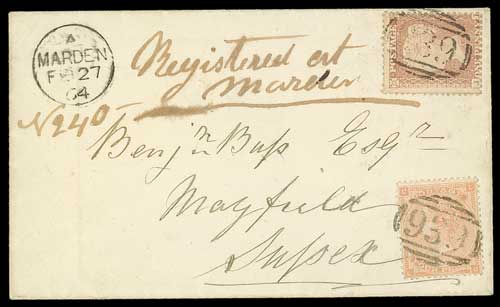 A
MARDEN
FE 27
64
Registered at
Marden
No 240
Benjn Bass Esqr
Mayfield
Sussex
POSTAGE
959